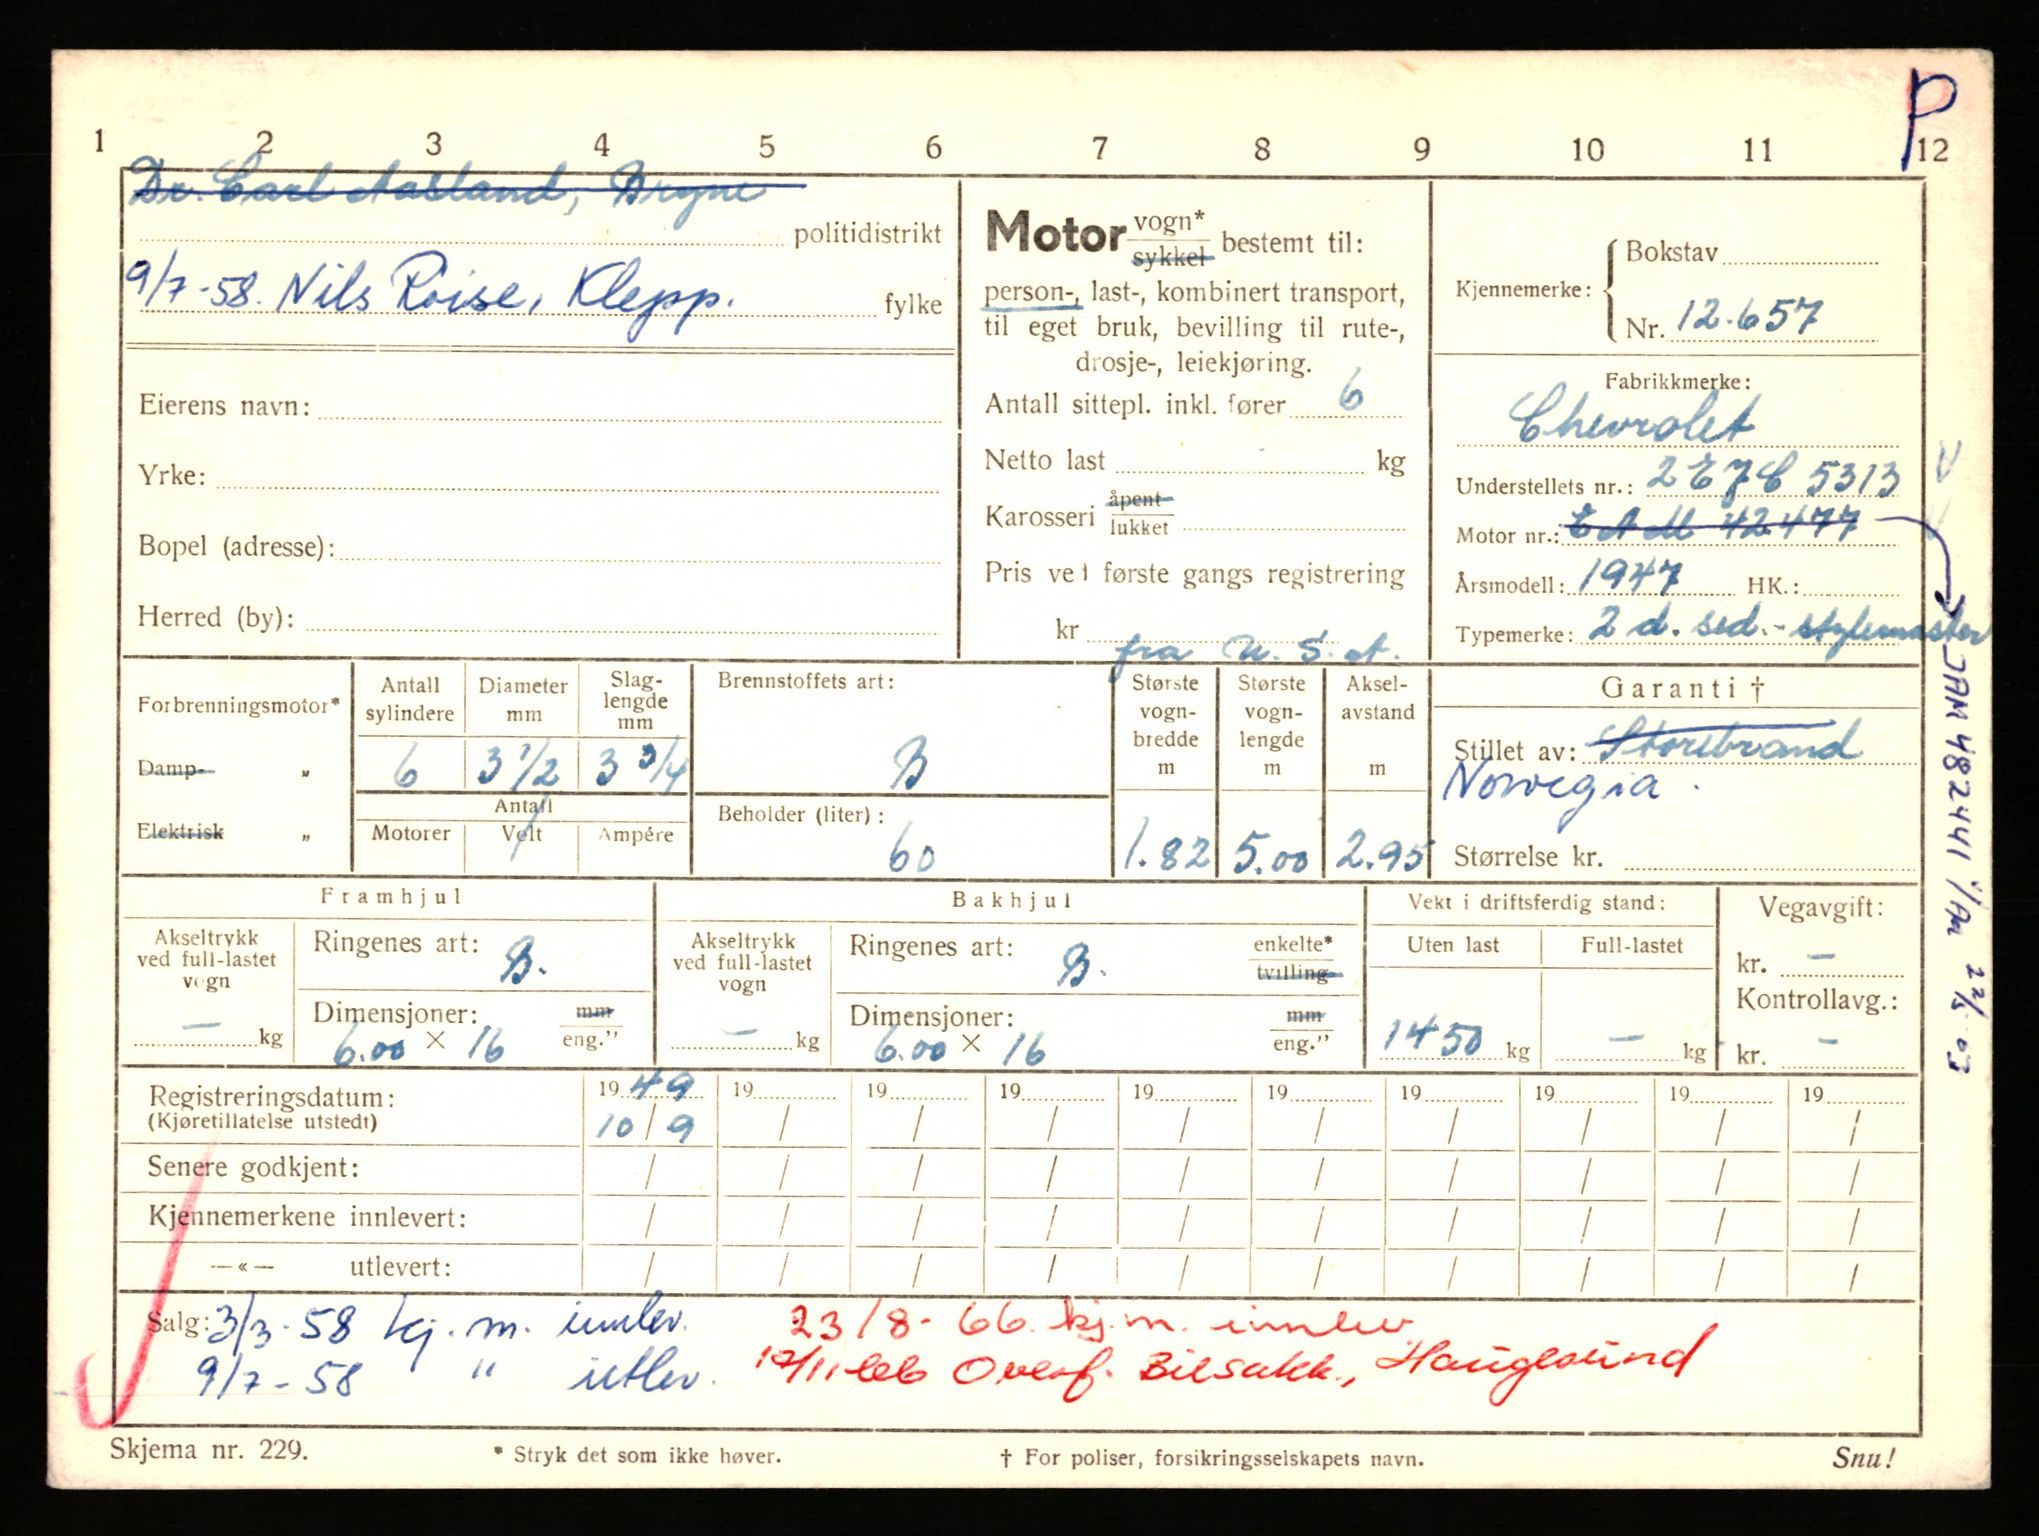 P
1 2 3 4 5 6 7 8 9 10 11 12
Dr. Carl Aasland, Bryne
politidistrikt
9/7-58. Nils Roise, Klepp.
fylke
Eierens navn:
Yrke:
Bopel (adresse):
Herred (by):
Motor vogn* sykkel bestemt til:
person-, last-, kombinert transport,
til eget bruk, bevilling til rute-,
drosje-, leiekjøring.
Antall sittepl. inkl. fører 6
Netto last kg
Karosseri åpent lukket
Pris ved første gangs registrering
kr
fra U.S.A.
Kjennemerke: Bokstav
Nr. 12.657
Fabrikkmerke:
Chevrolet
Understellets nr.: 2 E J C 5313
Motor nr.: E A M 42477
Årsmodell: 1947 HK.:
Typemerke: 2 d. sed. - stylemaster
JAM 482441 22/5-63
Forbrenningsmotor*
Damp- „
Elektrisk „
Antall sylindere
6
Diameter mm
3 1/2
Slaglengde mm
3 3/4
Antall
Motorer Volt Ampére
Brennstoffets art:
B
Beholder (liter):
60
Største vognbredde m
1.82
Største vognlengde m
5.00
Akselavstand m
2.95
Garanti †
Stillet av: Storebrand
Norvegia.
Størrelse kr.
Framhjul
Akseltrykk
ved full-lastet
vogn
— kg
Ringenes art: B.
Dimensjoner: mm
6.00 × 16 eng.”
Bakhjul
Akseltrykk
ved full-lastet
vogn
— kg
Ringenes art: B. enkelte*
tvilling
Dimensjoner: mm
6.00 × 16 eng.”
Vekt i driftsferdig stand:
Uten last
1450 kg
Full-lastet
— kg
Vegavgift:
kr. —
Kontrollavg.:
kr. -
Registreringsdatum: 19 49 19 19 19 19 19 19 19 19 19
(Kjøretillatelse utstedt) 10/9 / / / / / / / / /
Senere godkjent: / / / / / / / / / /
Kjennemerkene innlevert: / / / / / / / / / /
—«— utlevert: / / / / / / / / / /
Salg: 3/3-58 kj. m. innlev. 23/8-66. kj.m. innlev
9/7-58 " utlev. 17/11-66 Overf. Bilsakk., Haugesund
Skjema nr. 229. * Stryk det som ikke høver. † For poliser, forsikringsselskapets navn. Snu!